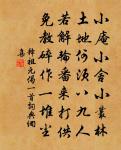 小庵小舍小叢林
土地何須八九人
若解輪番来打供
免教碎作一堆塵
釋祖元偈一首詞典網